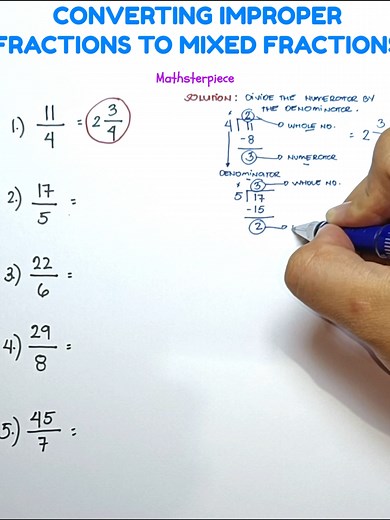 CONVERTING IMPROPER
FRACTIONS TO MIXED FRACTIONS
Mathsterpiece
SOLUTION: DIVIDE THE NUMERATOR BY
THE DENOMINATOR.
1.) 11/4 = 2 3/4
2
4 11 WHOLE NO.
-8
3 NUMERATOR
DENOMINATOR
= 2 3
2.) 17/5 =
3 WHOLE NO.
5 17
-15
2
3.) 22/6 =
4.) 29/8 =
5.) 45/7 =